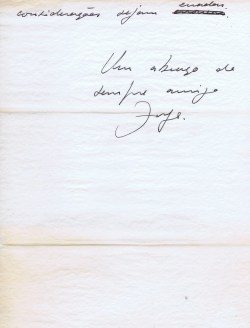 considerações sejam erradas.
Um abraço do
sempre amigo
Jorge.